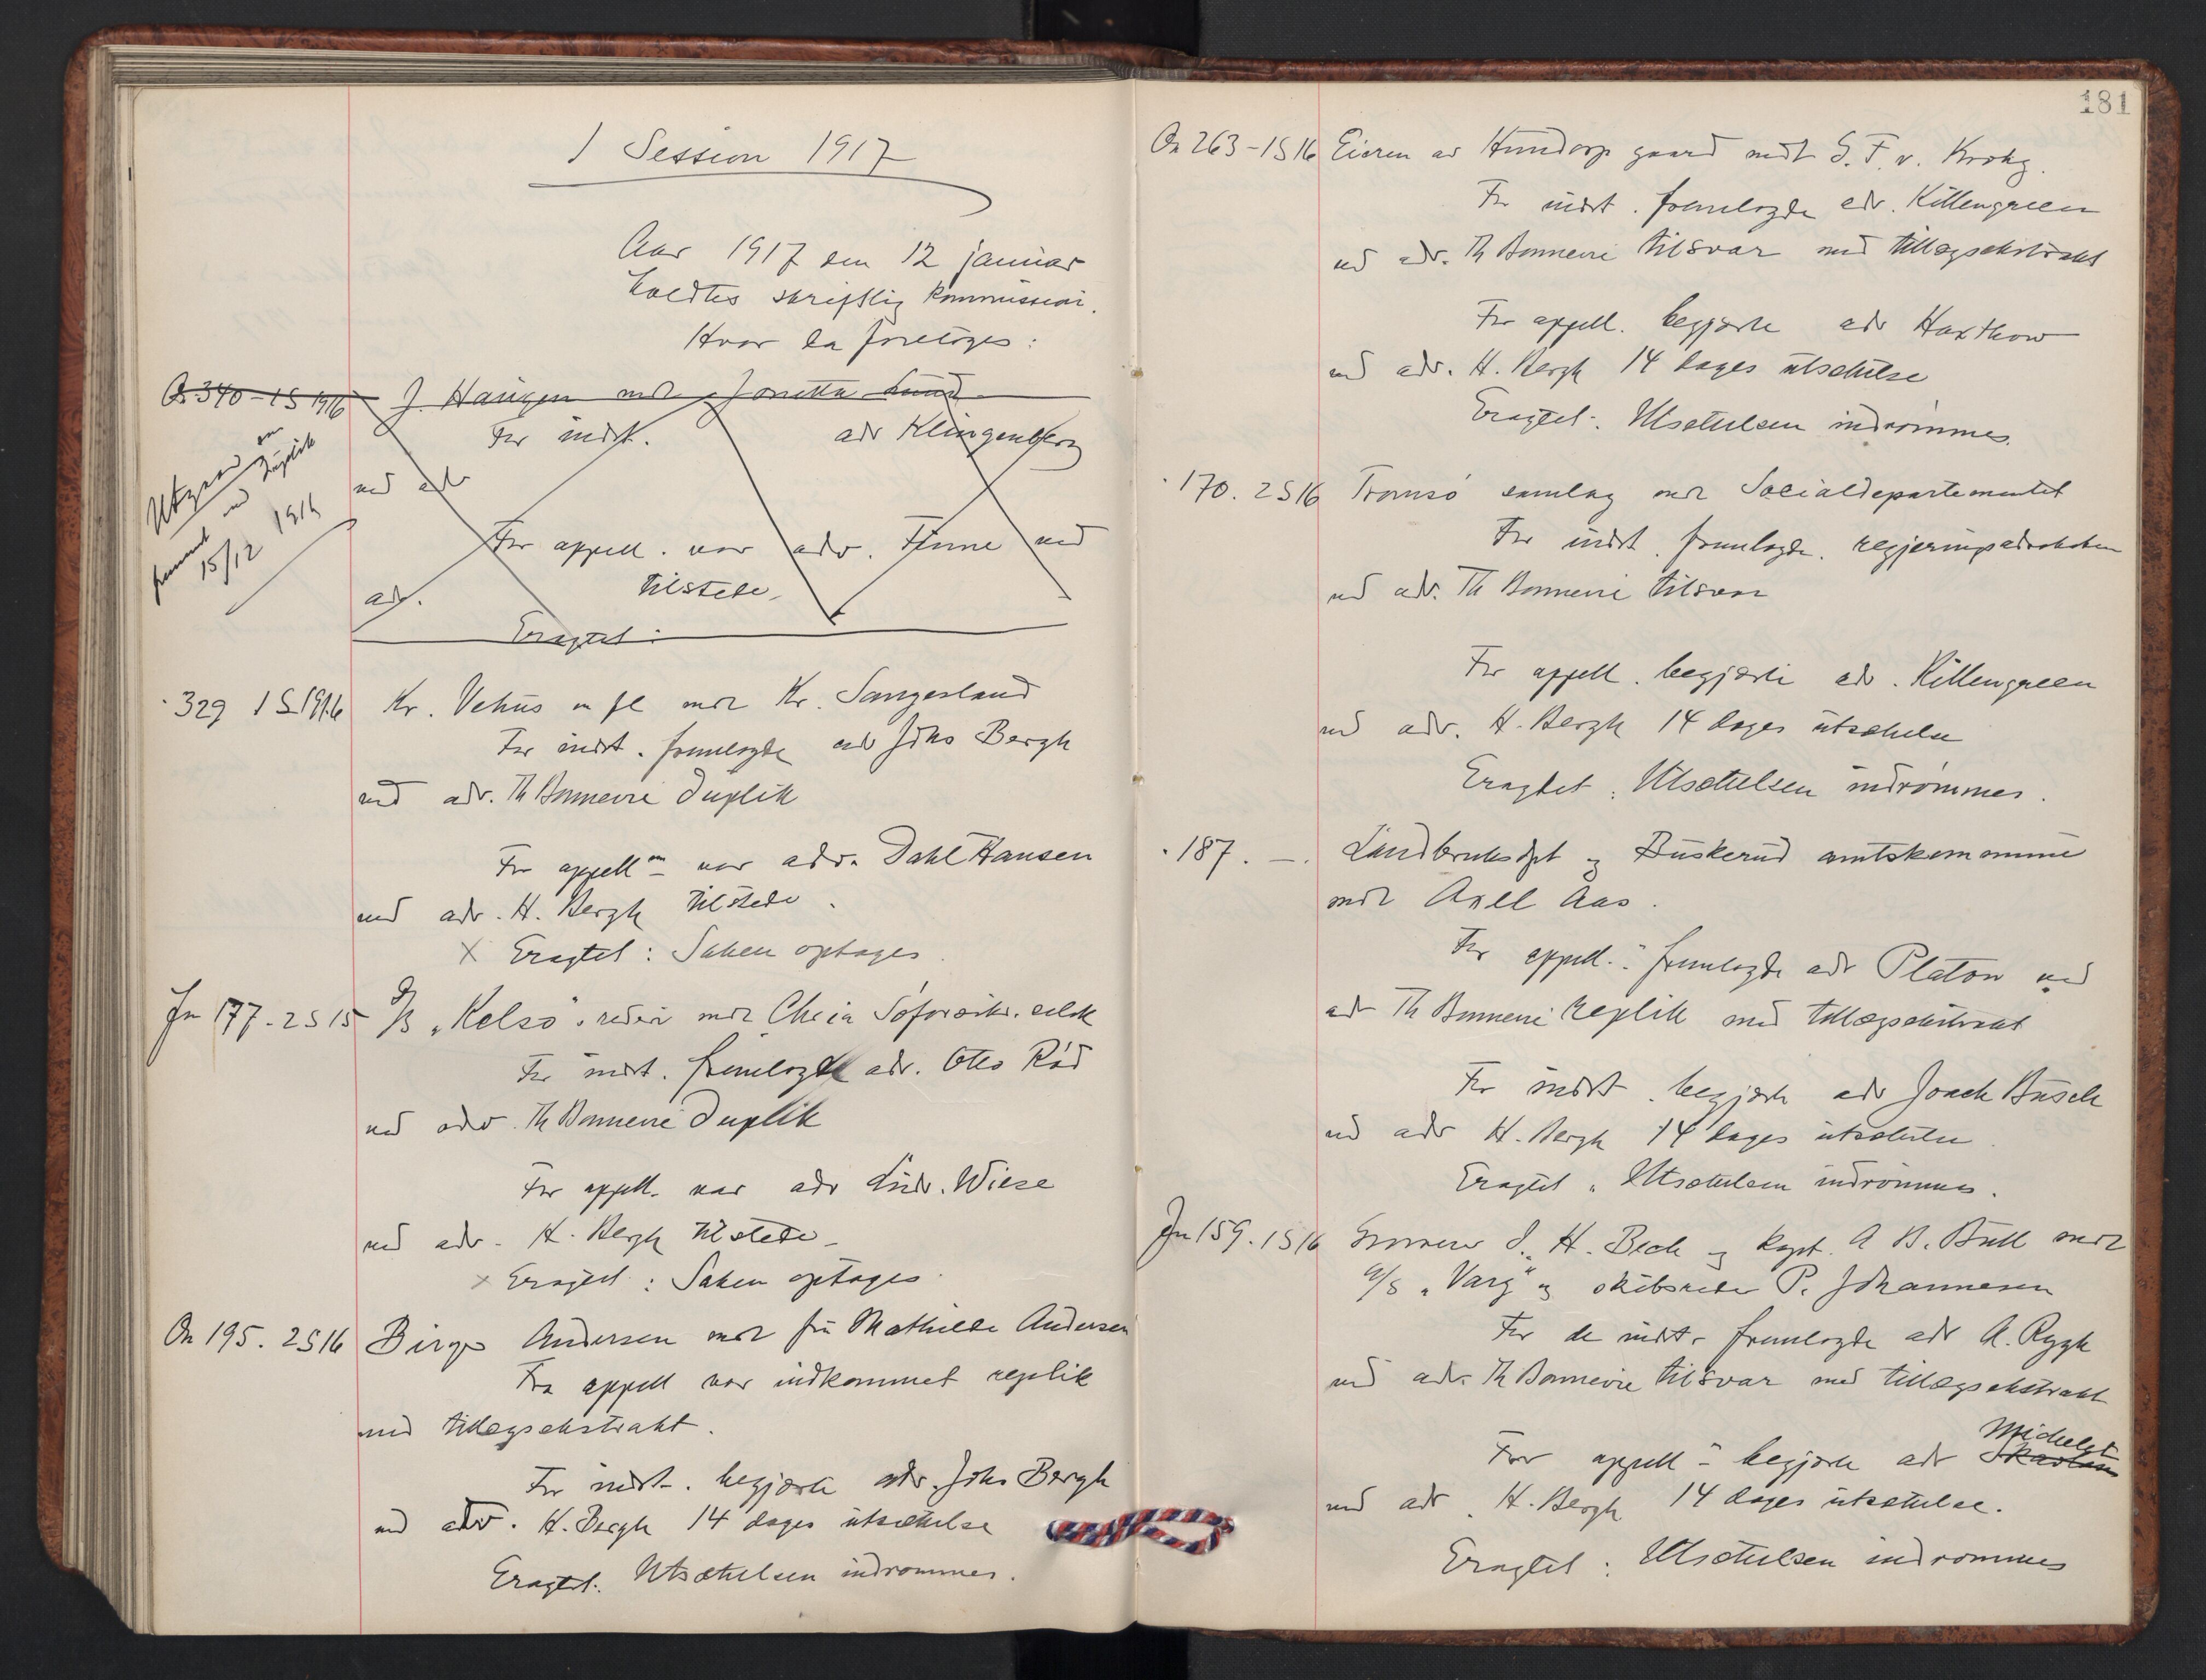 1 Session 1917
Aar 1917 den 12 januar
holdtes skriftlig kommission.
Hvor da foretoges:
On 340 - 1S 1916 J. Haugen mot Jonetta Lund
For indst. adv Klingenberg
Utgaar
fremmet med duplik
15/12 1916
ved adv
For appell. var adv. Finne ved
adv. tilstede
Eragtet:
329 1S 1916 Kr. Vehus m fl mot Kr. Sangesland
For indst. fremlagde adv Johs Bergh
ved adv. Th Bonnevie duplik
For appell. var adv. Dahl Hansen
ved adv. H. Bergh tilstede.
X Eragtet: Saken optages.
Jn 177 - 2S 15 D/S "Kelso"s rederi mot Chr.ia Søforsikr. selsk
For indst. fremlagde adv. Otto Röd
ved adv Th Bonnevie Duplik
For appell. var adv Ludv. Wiese
ved adv. H. Bergh tilstede
x Eragtet: Saken optages.
On 195. 2S16 Birger Andersen mot fru Mathilde Andersen
Fra appell var indkommet replik
med tillægsekstrakt.
For indst. begjærte adv. Johs Bergh
ved adv. H. Bergh 14 dages utsættelse
Eragtet: Utsættelsen indrømmes.
181
On 263 - 1S16 Eieren av Hundorp gaard mot S. F. v. Krohg
For indst. fremlagde adv. Killengreen
ved adv. Th Bonnevie tilsvar med tillægsekstrakt
For appell. begjærte adv Haxthow
ved adv. H. Bergh 14 dages utsættelse
Eragtet: Utsættelsen indrømmes.
170. 2S16 Tromsø samlag mot Socialdepartementet
For indst. fremlagde regjeringsadvokaten
ved adv. Th Bonnevie tilsvar
For appell. begjærte adv. Killengreen
ved adv. H. Bergh 14 dages utsættelse
Eragtet: Utsættelsen indrømmes.
187. — . Landbruksdpt og Buskerud amtskommune
mot Axel Aas.
For appell. fremlagde adv Platou ved
adv Th Bonnevie replik med tillægsekstrakt
For indst. begjærte adv Joach Busch
ved adv H. Bergh 14 dages utsættelse.
Eragtet: Utsættelsen indrømmes.
Jn 159. 1S16 Grosserer J. H. Beck og kapt. A B. Bull mot
A/S "Varg" og skibsreder P. Johannesen
For de indst. fremlagde adv A. Rygh
ved adv. Th Bonnevie tilsvar med tillægsekstrakt
Michelet
For appell. begjærte adv Skavlan
ved adv H. Bergh 14 dages utsættelse.
Eragtet: Utsættelsen indrømmes